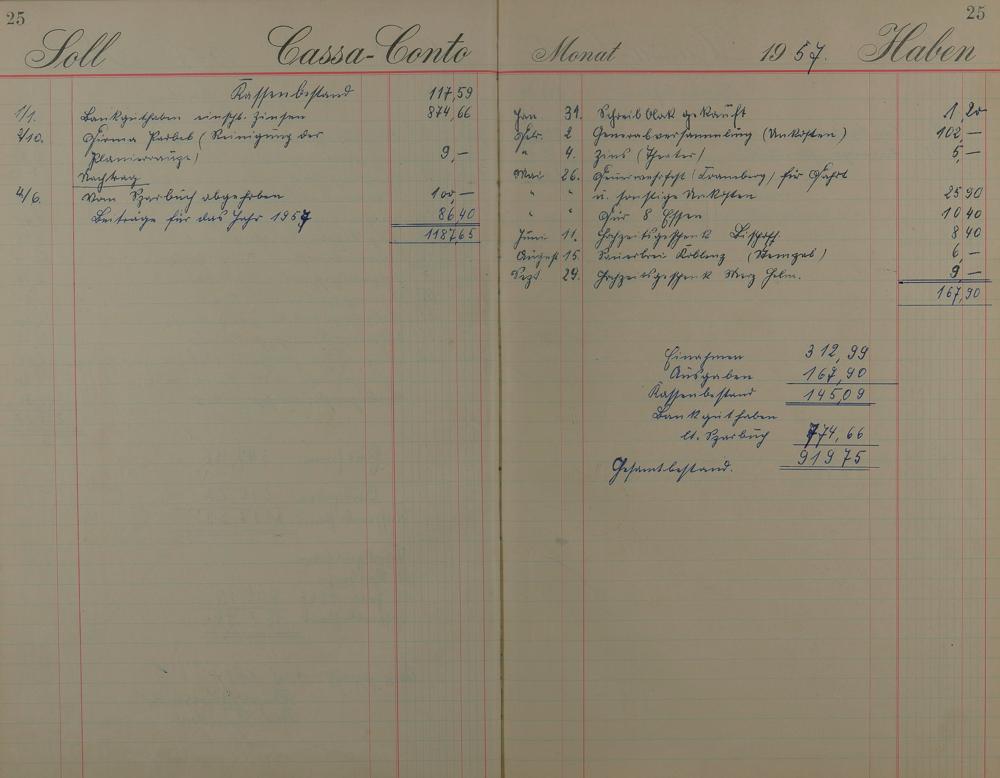 25
Soll Cassa-Conto
Kassenbestand 117,59
1/1. Bankguthaben einschl. Zinsen 874,66
2/10. Firma Parbel (Reinigung der
Planierraupe) 9,—
Nachtrag
4/6. Vom Sparbuch abgehoben 100,—
Beiträge für das Jahr 1957 86 40
1187 65
25
Monat 1957. Haben
Jan 31. Schreibblock gekauft 1,20
Febr. 2 Generalversammlung (Unkosten) 102,—
" 4. Zins (Theater) 5,—
Mai 26. Feuerwehrfest für Fahrt
" " u. sonstige Unkosten 25 90
" " Für 8 Essen 10 40
Juni 11. Hochzeitsgeschenk Bischoff. 8 40
August 15. Koblenz (Stempel) 6,—
Sept 29. Hochzeitsgeschenk Helm. 9,—
167,90
Einnahmen 312,99
Ausgaben 167,90
Kassenbestand 145,09
Bankguthaben
lt. Sparbuch 774,66
Gesamtbestand. 919 75